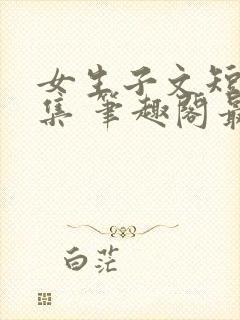 女生子文短
集 笔趣阁最
白茫